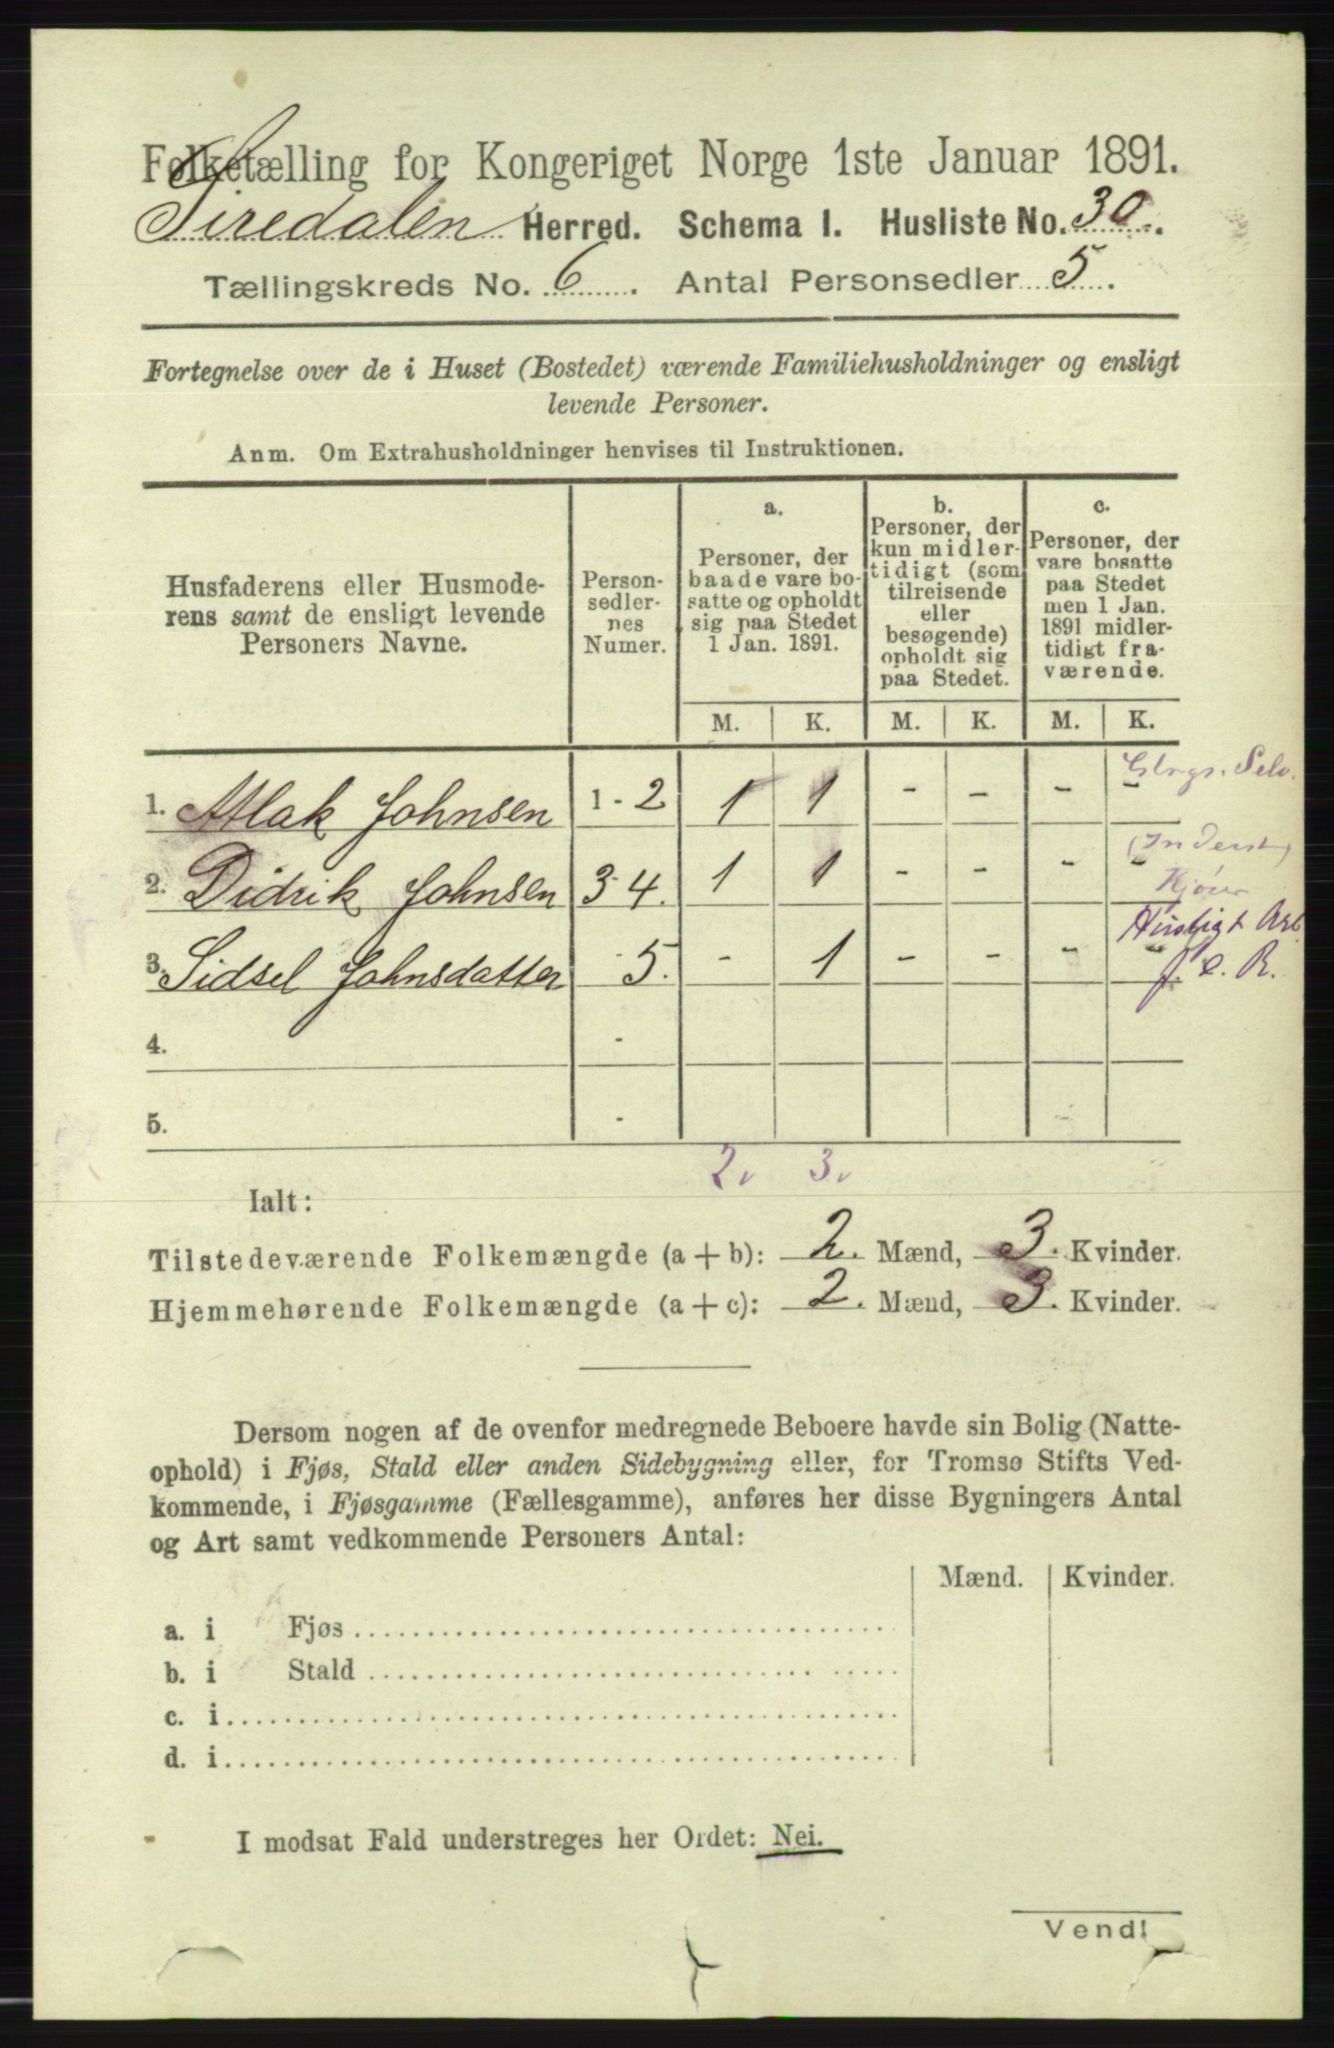 Folketælling for Kongeriget Norge 1ste Januar 1891.
Siredalen Herred. Schema I. Husliste No. 30.
Tællingskreds No. 6. Antal Personsedler 5.
Fortegnelse over de i Huset (Bostedet) værende Familiehusholdninger og ensligt
levende Personer.
Anm. Om Extrahusholdninger henvises til Instruktionen.
Husfaderens eller Husmode-
rens samt de ensligt levende
Personers Navne.
Person-
sedler-
nes
Numer.
a.
Personer, der
baade vare bo-
satte og opholdt
sig paa Stedet
1 Jan. 1891.
b.
Personer, der
kun midler-
tidigt (som
tilreisende
eller
besøgende)
opholdt sig
paa Stedet.
c.
Personer, der
vare bosatte
paa Stedet
men 1 Jan.
1891 midler-
tidigt fra-
værende.
M. K. M. K. M. K.
1. Atlak Johnsen 1-2 1 1 - - - - Selv.
2. Didrik Johnsen 3-4. 1 1 - - - - (Inderst)
3. Sidsel Johnsdatter 5. - 1 - - - - Husligt Arb.
4. -
5. -
2. 3.
Ialt:
Tilstedeværende Folkemængde (a + b): 2. Mænd, 3. Kvinder.
Hjemmehørende Folkemængde (a + c): 2. Mænd, 3. Kvinder.
Dersom nogen af de ovenfor medregnede Beboere havde sin Bolig (Natte-
ophold) i Fjøs, Stald eller anden Sidebygning eller, for Tromsø Stifts Ved-
kommende, i Fjøsgamme (Fællesgamme), anføres her disse Bygningers Antal
og Art samt vedkommende Personers Antal:
Mænd. Kvinder.
a. i Fjøs
b. i Stald
c. i
d. i
I modsat Fald understreges her Ordet: Nei.
Vend!